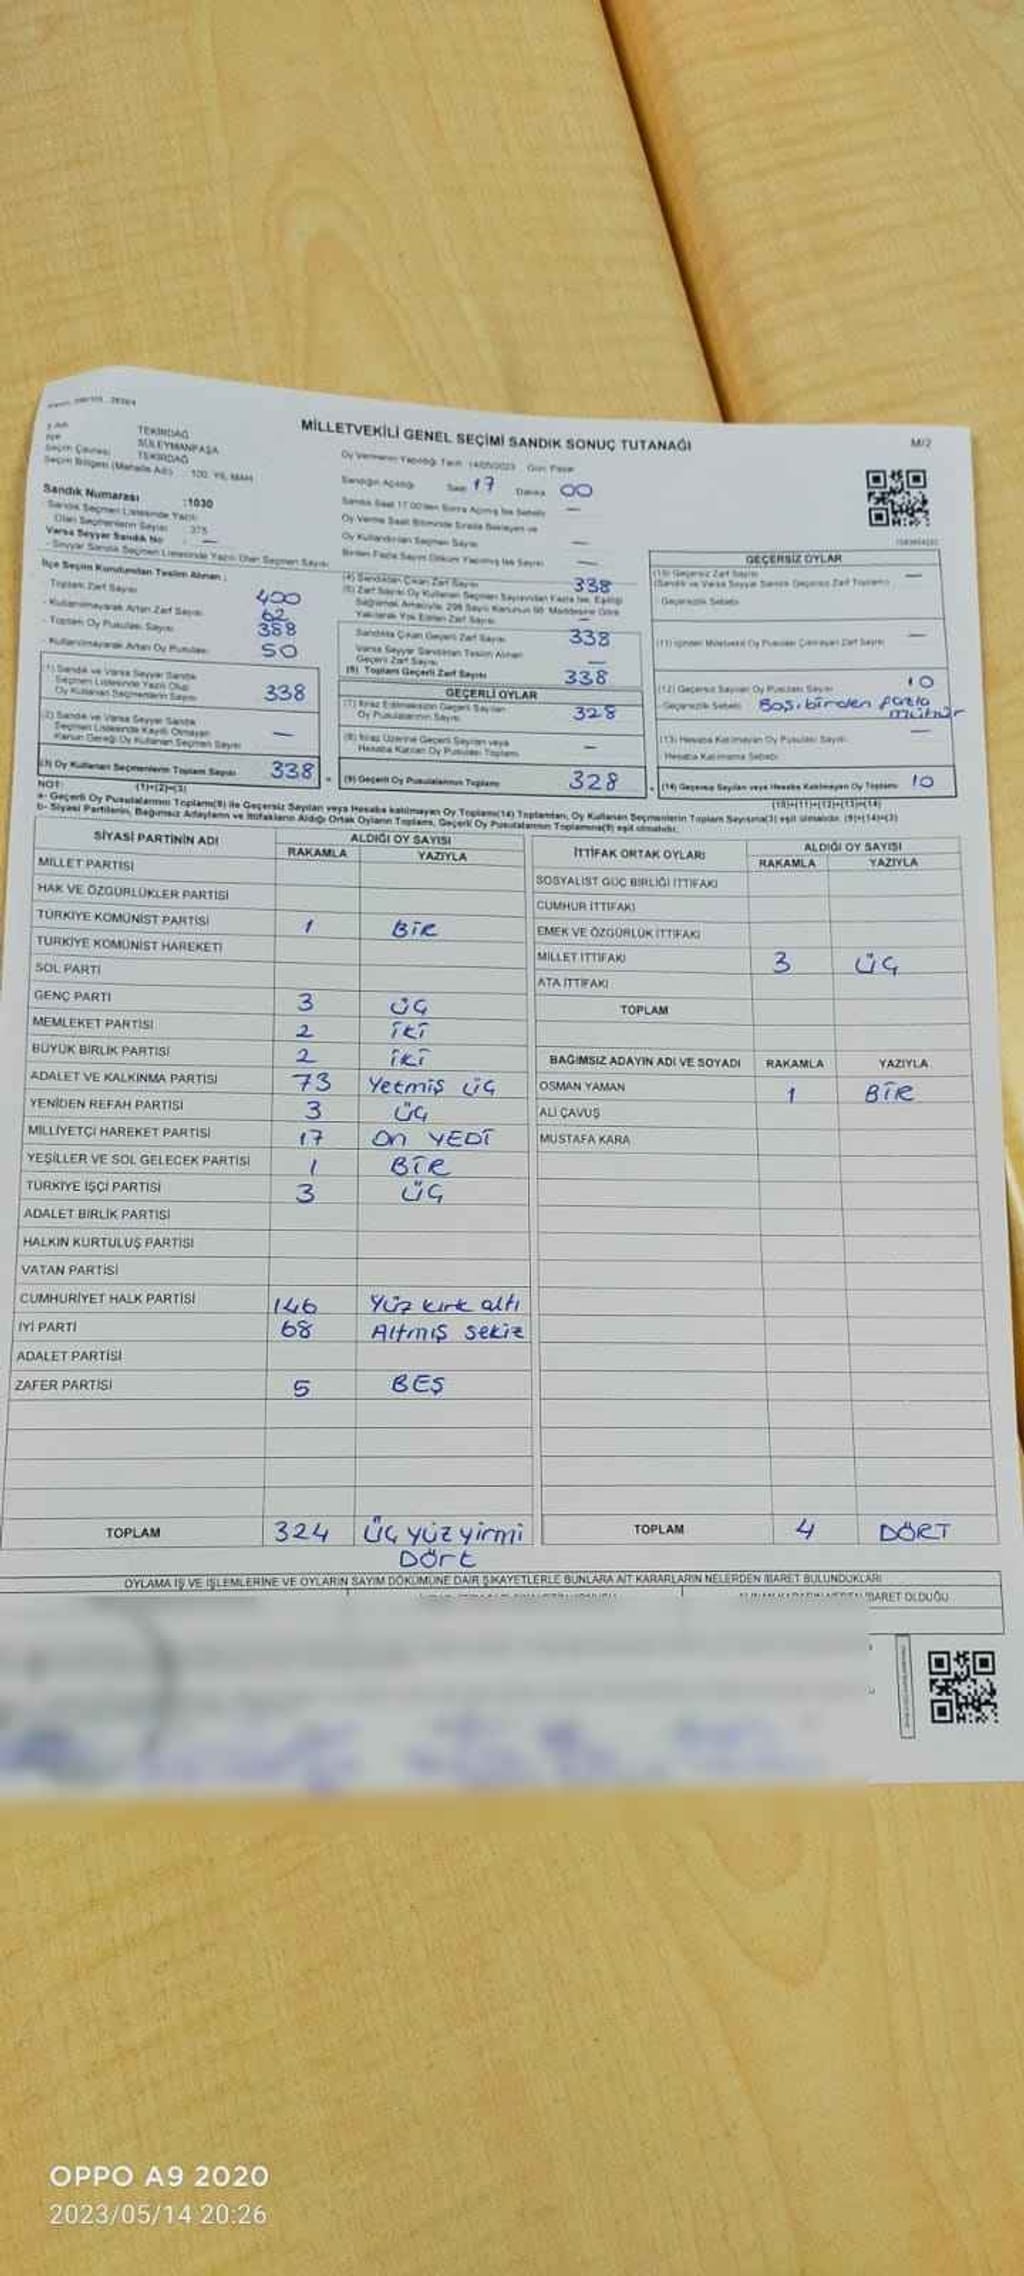 MİLLETVEKİLİ GENEL SEÇİMİ SANDIK SONUÇ TUTANAĞI
M/2
TEKİRDAĞ
SÜLEYMANPAŞA
Seçim Çevresi TEKİRDAĞ
Seçim Bölgesi (Mahalle Adı) : 100. YIL MAH
Oy Vermenin Yapıldığı Tarih : 14/05/2023 Gün: Pazar
Sandığın Açıldığı Saat 17 Dakika 00
Sandık Numarası :1030
Sandık Seçmen Listesinde Yazılı
Olan Seçmenlerin Sayısı : 375
Varsa Seyyar Sandık No : —
- Seyyar Sandık Seçmen Listesinde Yazılı Olan Seçmen Sayısı
İlçe Seçim Kurulundan Teslim Alınan :
Toplam Zarf Sayısı 400
- Kullanılmayarak Artan Zarf Sayısı 62
- Toplam Oy Pusulası Sayısı 388
- Kullanılmayarak Artan Oy Pusulası 50
(1) Sandık ve Varsa Seyyar Sandık
Seçmen Listesinde Yazılı Olup
Oy Kullanan Seçmenlerin Sayısı 338
(2) Sandık ve Varsa Seyyar Sandık
Seçmen Listesinde Kayıtlı Olmayan
Kanun Gereği Oy Kullanan Seçmen Sayısı —
(3) Oy Kullanan Seçmenlerin Toplam Sayısı 338
(1)+(2)=(3)
(4) Sandıktan Çıkan Zarf Sayısı 338
Sandıkta Çıkan Geçerli Zarf Sayısı 338
Varsa Seyyar Sandıktan Teslim Alınan
Geçerli Zarf Sayısı —
(6) Toplam Geçerli Zarf Sayısı 338
GEÇERLİ OYLAR
(7) İtiraz Edilmeksizin Geçerli Sayılan
Oy Pusulalarının Sayısı 328
(8) İtiraz Üzerine Geçerli Sayılan veya
Hesaba Katılan Oy Pusulası Toplamı —
(9) Geçerli Oy Pusulalarının Toplamı 328
GEÇERSİZ OYLAR
(10) Geçersiz Zarf Sayısı —
(Sandık ve Varsa Seyyar Sandık Geçersiz Zarf Toplamı)
Geçersizlik Sebebi
(11) İçinden Milletvekili Oy Pusulası Çıkmayan Zarf Sayısı —
(12) Geçersiz Sayılan Oy Pusulası Sayısı 10
Geçersizlik Sebebi Boş, birden fazla
mühür
(13) Hesaba Katılmayan Oy Pusulası Sayısı —
Hesaba Katılmama Sebebi
(14) Geçersiz Sayılan veya Hesaba Katılmayan Oy Toplamı 10
(10)+(11)+(12)+(13)=(14)
NOT:
a- Geçerli Oy Pusulalarının Toplamı(9) ile Geçersiz Sayılan veya Hesaba katılmayan Oy Toplamı(14) Toplamları, Oy Kullanan Seçmenlerin Toplam Sayısına(3) eşit olmalıdır. (9)+(14)=(3)
b- Siyasi Partilerin, Bağımsız Adayların ve İttifakların Aldığı Ortak Oyların Toplamı, Geçerli Oy Pusulalarının Toplamına(9) eşit olmalıdır.
SİYASİ PARTİNİN ADI ALDIĞI OY SAYISI
RAKAMLA YAZIYLA
MİLLET PARTİSİ
HAK VE ÖZGÜRLÜKLER PARTİSİ
TÜRKİYE KOMÜNİST PARTİSİ 1 BİR
TÜRKİYE KOMÜNİST HAREKETİ
SOL PARTİ
GENÇ PARTİ 3 ÜÇ
MEMLEKET PARTİSİ 2 İKİ
BÜYÜK BİRLİK PARTİSİ 2 İKİ
ADALET VE KALKINMA PARTİSİ 73 Yetmiş üç
YENİDEN REFAH PARTİSİ 3 ÜÇ
MİLLİYETÇİ HAREKET PARTİSİ 17 On YEDİ
YEŞİLLER VE SOL GELECEK PARTİSİ 1 BİR
TÜRKİYE İŞÇİ PARTİSİ 3 ÜÇ
ADALET BİRLİK PARTİSİ
HALKIN KURTULUŞ PARTİSİ
VATAN PARTİSİ
CUMHURİYET HALK PARTİSİ 146 Yüz kırk altı
İYİ PARTİ 68 Altmış sekiz
ADALET PARTİSİ
ZAFER PARTİSİ 5 BEŞ
TOPLAM 324 Üç yüz yirmi
Dört
İTTİFAK ORTAK OYLARI ALDIĞI OY SAYISI
RAKAMLA YAZIYLA
SOSYALİST GÜÇ BİRLİĞİ İTTİFAKI
CUMHUR İTTİFAKI
EMEK VE ÖZGÜRLÜK İTTİFAKI
MİLLET İTTİFAKI 3 ÜÇ
ATA İTTİFAKI
TOPLAM
BAĞIMSIZ ADAYIN ADI VE SOYADI RAKAMLA YAZIYLA
OSMAN YAMAN 1 BİR
ALİ ÇAVUŞ
MUSTAFA KARA
TOPLAM 4 DÖRT
OYLAMA İŞ VE İŞLEMLERİNE VE OYLARIN SAYIM DÖKÜMÜNE DAİR ŞİKAYETLERLE BUNLARA AİT KARARLARIN NELERDEN İBARET BULUNDUKLARI
İBARET OLDUĞU
OPPO A9 2020
2023/05/14 20:26